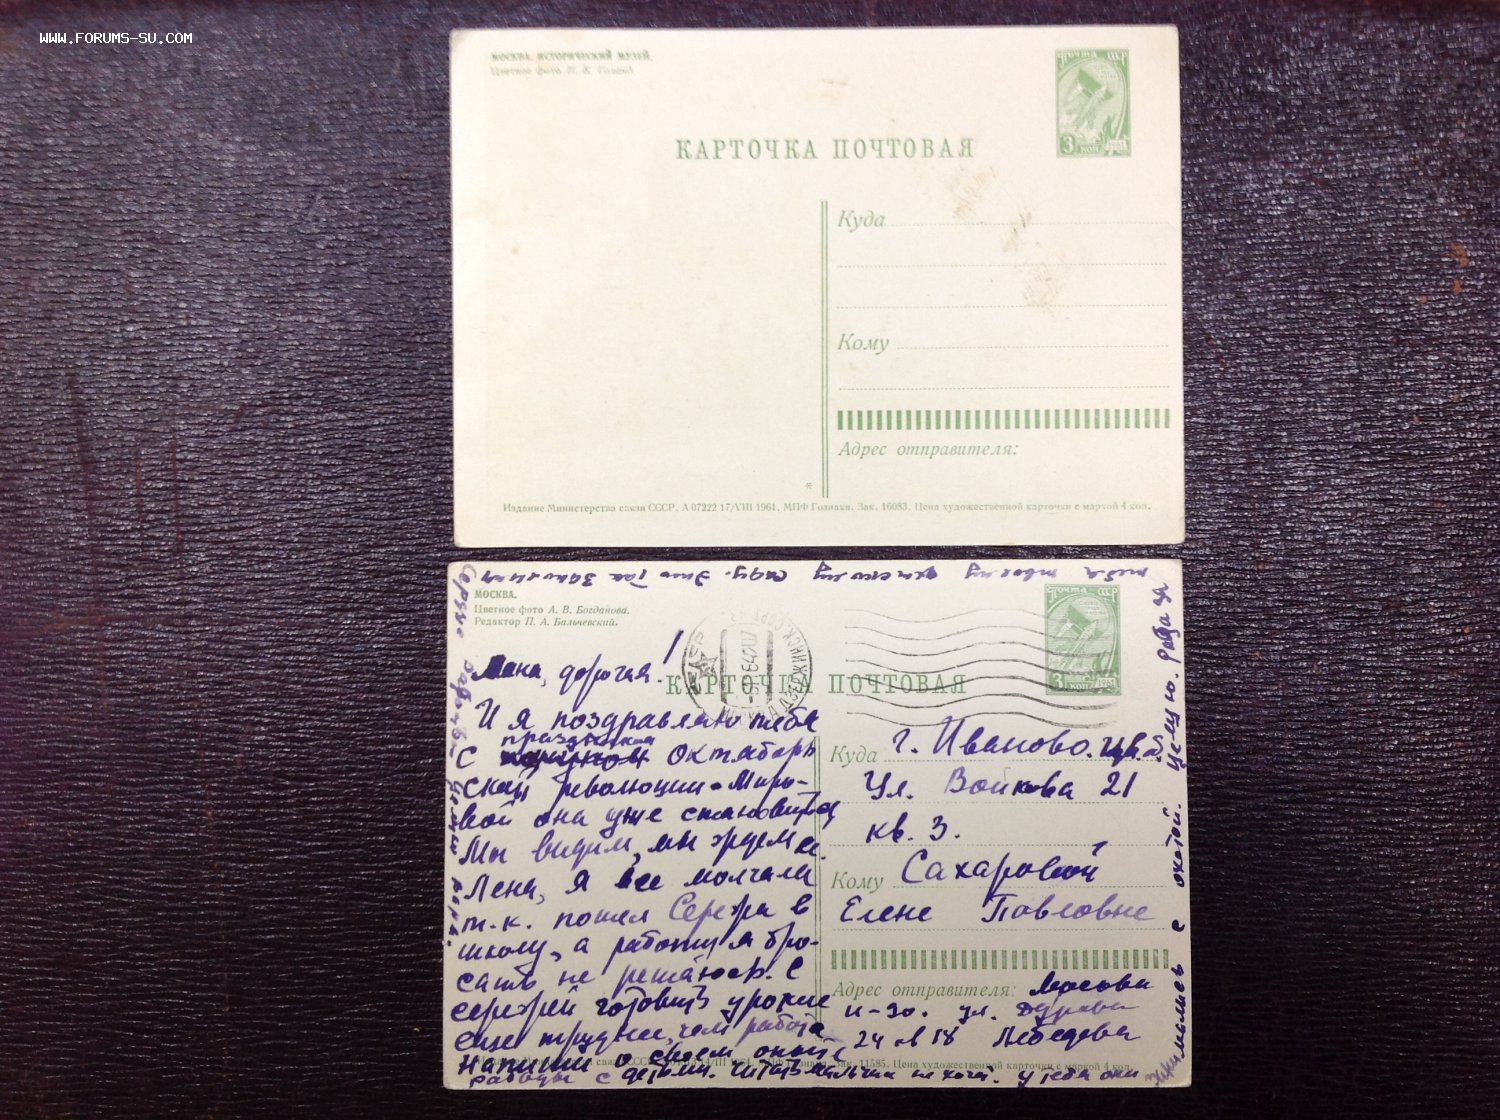 WWW.FORUMS-SU.COM
МОСКВА. ИСТОРИЧЕСКИЙ МУЗЕЙ.
Цветное фото
ПОЧТА СССР
3 КОП 1961
КАРТОЧКА ПОЧТОВАЯ
Куда
Кому
Адрес отправителя:
Издание Министерства связи СССР. А 07222 17/VIII 1961. МПФ Гознака. Зак. 16083. Цена художественной карточки с маркой 4 коп.
МОСКВА.
Цветное фото А. В. Богданова.
Редактор П. А. Бальчевский.
ПОЧТА СССР
3 КОП 1961
КАРТОЧКА ПОЧТОВАЯ
Лена, дорогая!
И я поздравляю тебя
с праздником Октябрь
ской революции. Миро-
вой она уже становится
Мы видим, мы ждем ее.
Лена, я все молчала
т.к. пошел Сережа в
школу, а работу я бро-
сать не решаюсь. С
Сережей готовить уроки
еще труднее, чем работа
Напиши о своем опыте
работы с детьми. Читать не хочет. У тебя они
с охотой. Целую. Рада за
тебя твоему детскому саду.
Сережу целую
Куда г. Иваново.
Ул. Войкова 21
кв. 3.
Кому Сахаровой
Елене Павловне
Адрес отправителя: Москва
И-30. ул.
24 кв 18 Лебедева
11585. Цена художественной карточки с маркой 4 коп.